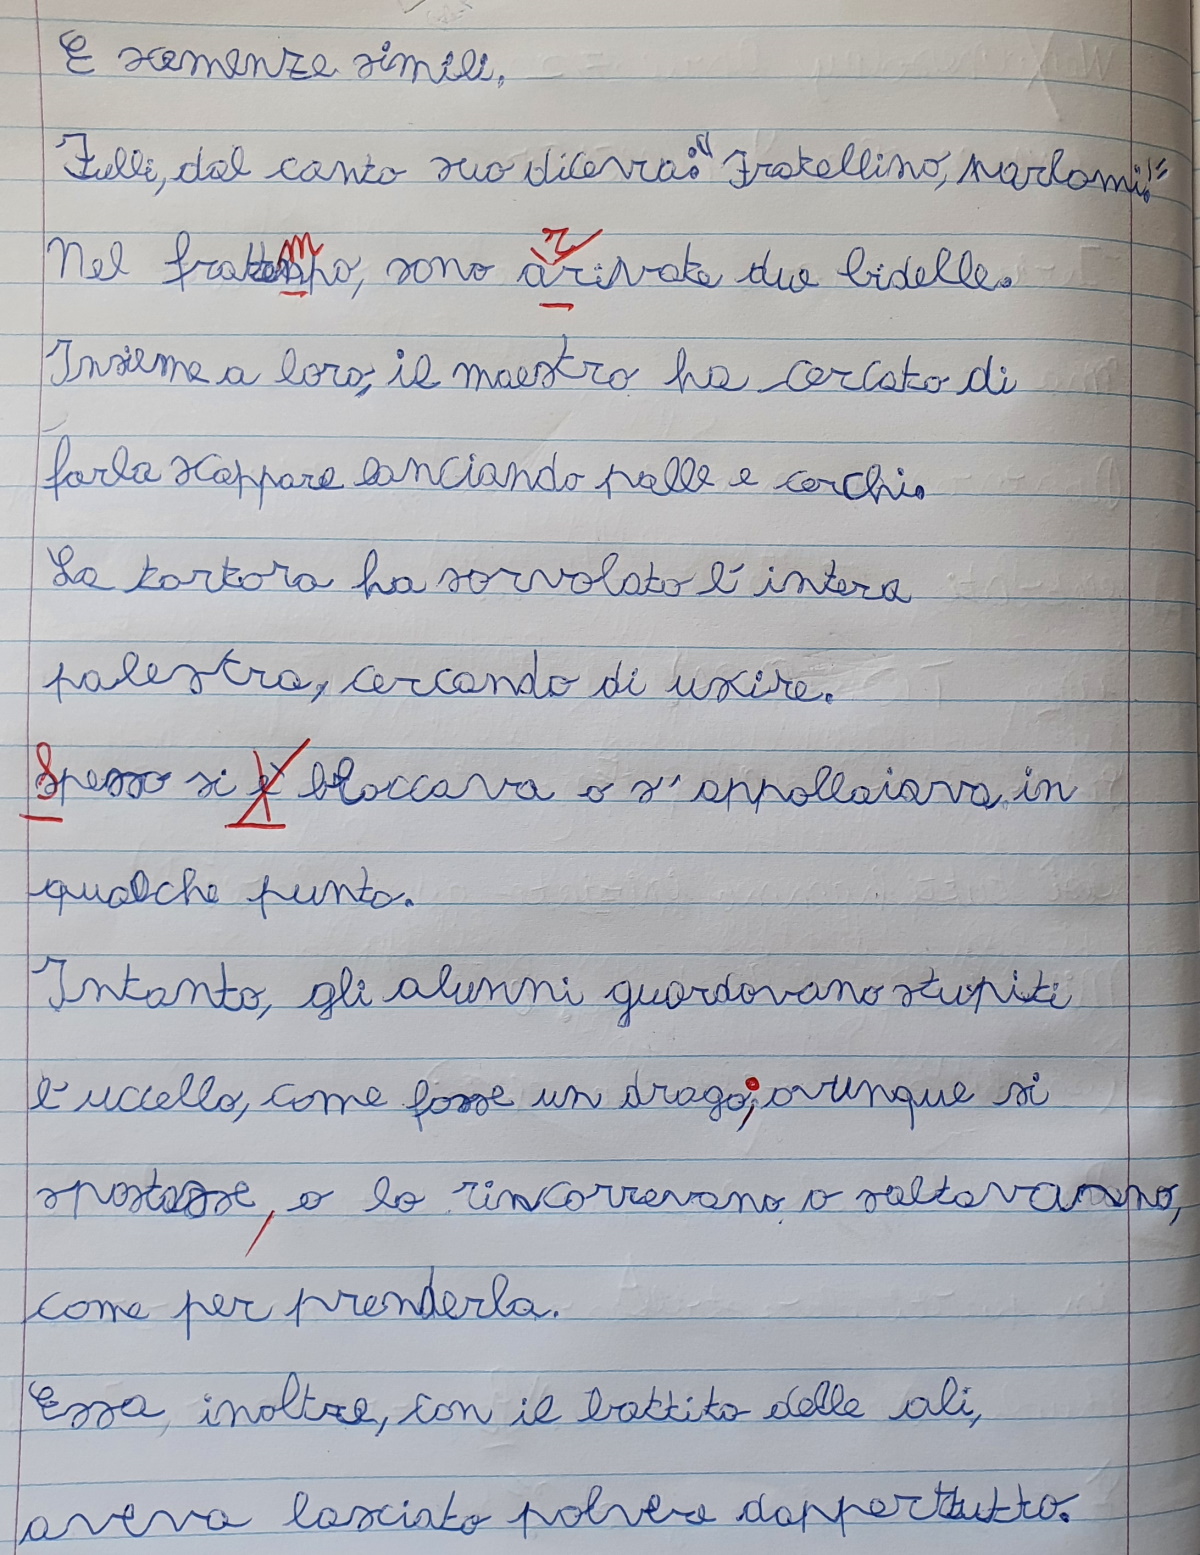 E scemenze simili,
Fulli, dal canto suo diceva: "Fratellino, parlami!"
Nel frattempo, sono arrivate due bidelle.
Insieme a loro, il maestro ha cercato di
farla scappare lanciando palle e cerchi.
La tortora ha sorvolato l'intera
palestra, cercando di uscire.
Spesso si bloccava o s'appollaiava in
qualche punto.
Intanto, gli alunni guardavano stupiti
l'uccello, come fosse un drago; ovunque si
spostasse, o lo rincorrevano o saltavano,
come per prenderla.
Essa, inoltre, con il battito delle ali,
aveva lasciato polvere dappertutto.